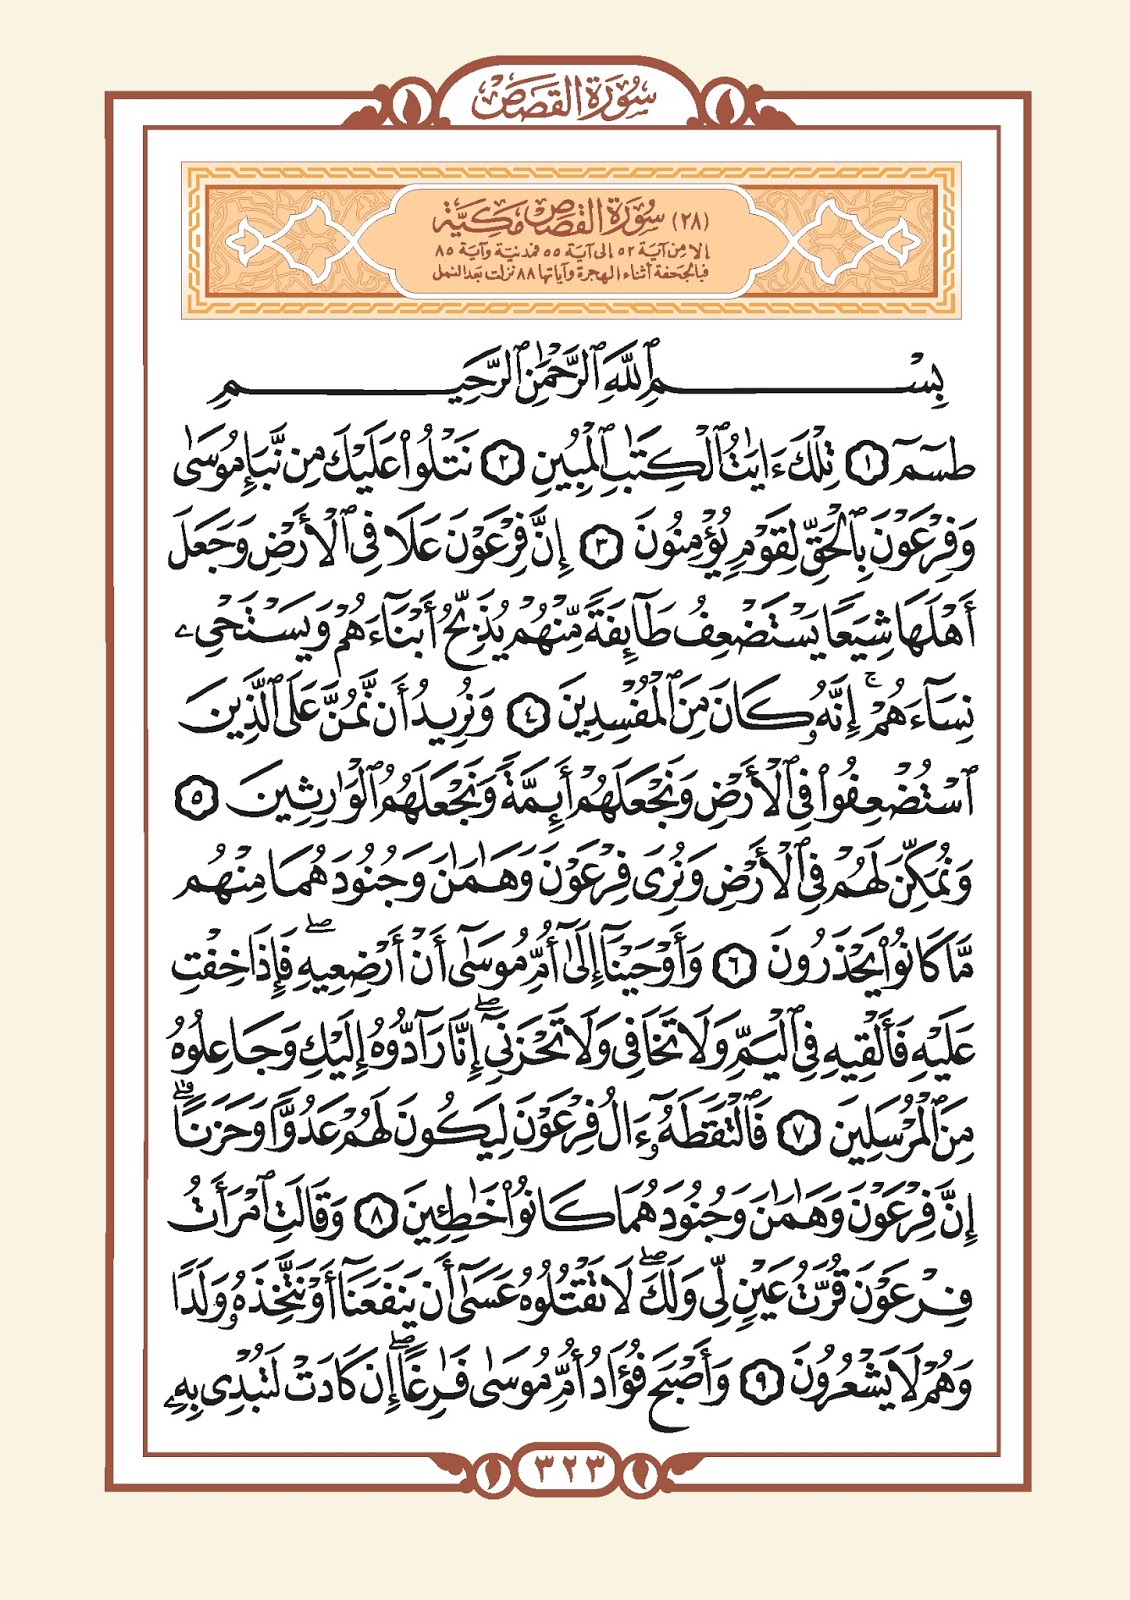 سُورَةُ القَصَصِ
(٢٨) سُورَةُ القَصَصِ مَكِيَّة
إلا من آية ٥٢ إلى آية ٥٥ فمدنية وآية ٨٥
فبالجحفة أثناء الهجرة وآياتها ٨٨ نزلت بعد النمل
بِسْمِ ٱللَّهِ ٱلرَّحْمَٰنِ ٱلرَّحِيمِ
طسٓمٓ ١ تِلْكَ ءَايَٰتُ ٱلْكِتَٰبِ ٱلْمُبِينِ ٢ نَتْلُوا۟ عَلَيْكَ مِن نَّبَإِ مُوسَىٰ
وَفِرْعَوْنَ بِٱلْحَقِّ لِقَوْمٍ يُؤْمِنُونَ ٣ إِنَّ فِرْعَوْنَ عَلَا فِى ٱلْأَرْضِ وَجَعَلَ
أَهْلَهَا شِيَعًا يَسْتَضْعِفُ طَآئِفَةً مِّنْهُمْ يُذَبِّحُ أَبْنَآءَهُمْ وَيَسْتَحْىِۦ
نِسَآءَهُمْ ۚ إِنَّهُۥ كَانَ مِنَ ٱلْمُفْسِدِينَ ٤ وَنُرِيدُ أَن نَّمُنَّ عَلَى ٱلَّذِينَ
ٱسْتُضْعِفُوا۟ فِى ٱلْأَرْضِ وَنَجْعَلَهُمْ أَئِمَّةً وَنَجْعَلَهُمُ ٱلْوَٰرِثِينَ ٥
وَنُمَكِّنَ لَهُمْ فِى ٱلْأَرْضِ وَنُرِىَ فِرْعَوْنَ وَهَٰمَٰنَ وَجُنُودَهُمَا مِنْهُم
مَّا كَانُوا۟ يَحْذَرُونَ ٦ وَأَوْحَيْنَآ إِلَىٰٓ أُمِّ مُوسَىٰٓ أَنْ أَرْضِعِيهِ ۖ فَإِذَا خِفْتِ
عَلَيْهِ فَأَلْقِيهِ فِى ٱلْيَمِّ وَلَا تَخَافِى وَلَا تَحْزَنِىٓ ۖ إِنَّا رَآدُّوهُ إِلَيْكِ وَجَاعِلُوهُ
مِنَ ٱلْمُرْسَلِينَ ٧ فَٱلْتَقَطَهُۥٓ ءَالُ فِرْعَوْنَ لِيَكُونَ لَهُمْ عَدُوًّا وَحَزَنًا ۗ
إِنَّ فِرْعَوْنَ وَهَٰمَٰنَ وَجُنُودَهُمَا كَانُوا۟ خَٰطِـِٔينَ ٨ وَقَالَتِ ٱمْرَأَتُ
فِرْعَوْنَ قُرَّتُ عَيْنٍ لِّى وَلَكَ ۖ لَا تَقْتُلُوهُ عَسَىٰٓ أَن يَنفَعَنَآ أَوْ نَتَّخِذَهُۥ وَلَدًا
وَهُمْ لَا يَشْعُرُونَ ٩ وَأَصْبَحَ فُؤَادُ أُمِّ مُوسَىٰ فَٰرِغًا ۖ إِن كَادَتْ لَتُبْدِى بِهِۦ
٣٢٣